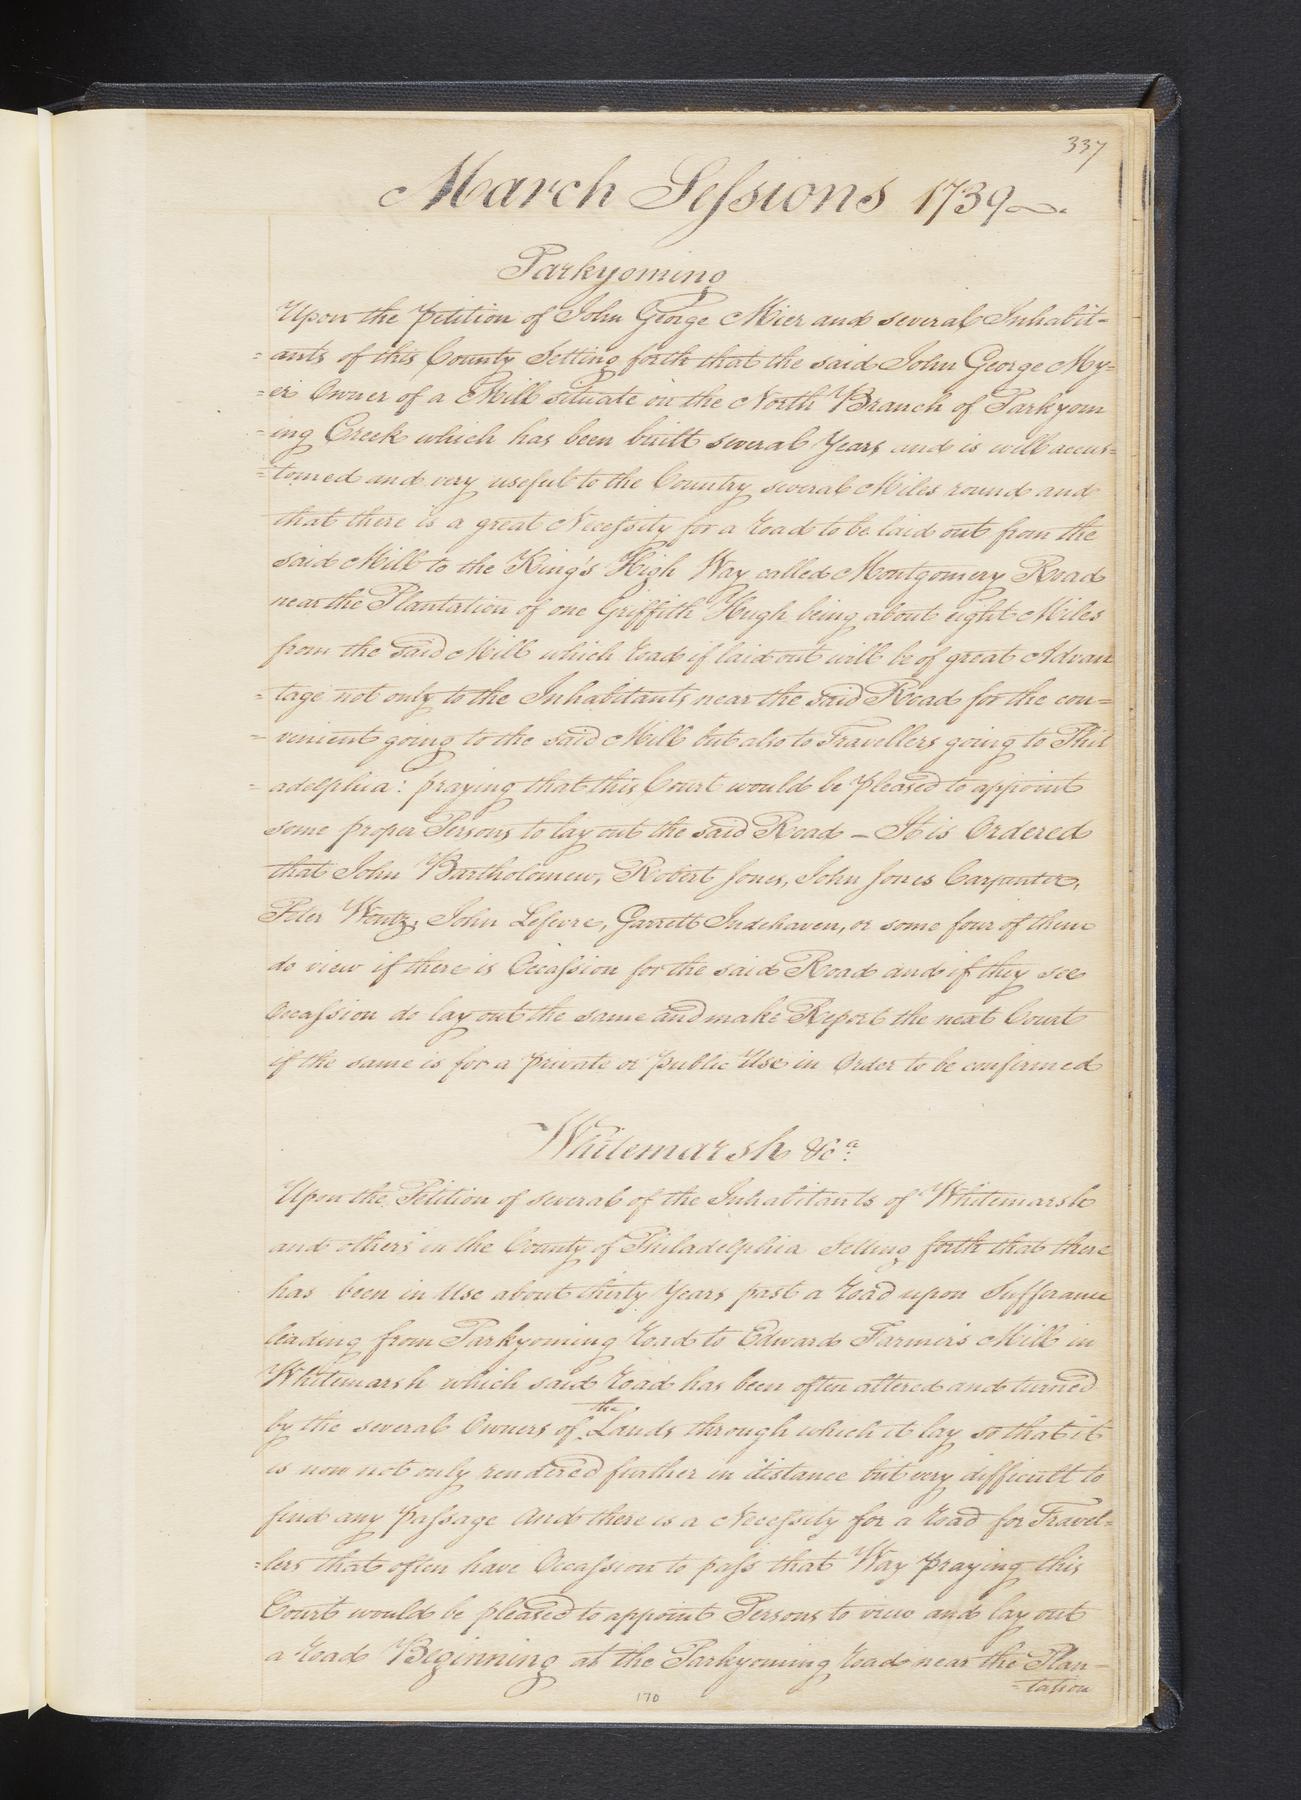 337
March Sessions 1739
Parkyoming
Upon the Petition of John George Mier and several Inhabit=
=ants of this County Setting forth that the said John George My=
=er Owner of a Mill situate on the North Branch of Parkyom
=ing Creek which has been built several Years and is well accus=
=tomed and very useful to the Country several Miles round and
that there is a great Necessity for a road to be laid out from the
said Mill to the King's High Way called Montgomery Road
near the Plantation of one Griffith Hugh being about eight Miles
from the said Mill which road if laid out will be of great Advan
=tage not only to the Inhabitants near the said Road for the con=
=venient going to the said Mill but also to Travellers going to Phil
=adelphia: praying that this Court would be pleased to appoint
some proper Persons to lay out the said Road – It is Ordered
that John Bartholomew, Robert Jones, John Jones Carpenter,
Peter Wentz, John Lefevre, Garrett Indehaven, or some four of them
do view if there is Occassion for the said Road and if they see
Occassion do lay out the same and make Report the next Court
if the same is for a private or public Use in Order to be confirmed
Whitemarsh &c a.
Upon the Petition of several of the Inhabitants of Whitemarsh
and others in the County of Philadelphia Setting forth that there
has been in Use about thirty Years past a road upon Sufferance
leading from Parkyoming road to Edward Farmer's Mill in
Whitemarsh which said road has been often altered and turned
by the several Owners of the Lands through which it lay so that it
is now not only rendered further in distance but very difficult to
find any passage and there is a Necessity for a road for Travel=
=lers that often have Occassion to pass that Way praying this
Court would be pleased to appoint Persons to view and lay out
a road Beginning at the Parkyoming road near the Plan-
=tation
170